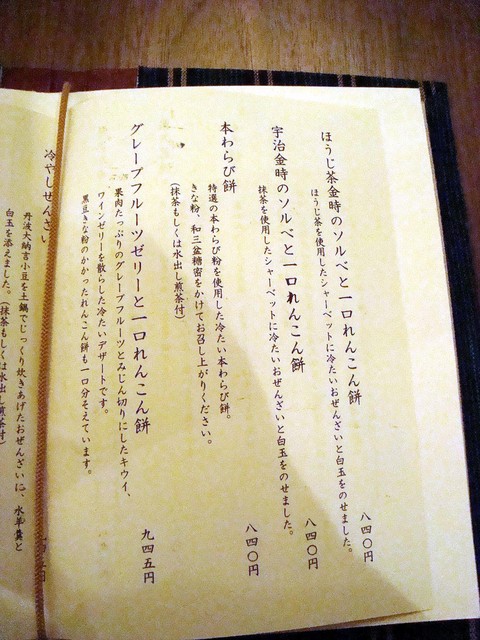 ほうじ茶金時のソルベと一口れんこん餅
ほうじ茶を使用したシャーベットに冷たいおぜんざいと白玉をのせました。
八四〇円
宇治金時のソルベと一口れんこん餅
抹茶を使用したシャーベットに冷たいおぜんざいと白玉をのせました。
八四〇円
本わらび餅
特選の本わらび粉を使用した冷たい本わらび餅。
きな粉、和三盆糖蜜をかけてお召し上がりください。
(抹茶もしくは水出し煎茶付)
八四〇円
グレープフルーツゼリーと一口れんこん餅
果肉たっぷりのグレープフルーツとみじん切りにしたキウイ、
ワインゼリーを散らした冷たいデザートです。
黒豆きな粉のかかったれんこん餅も一口分そえています。
九四五円
冷やしぜんざい
丹波大納言小豆を土鍋でじっくり炊きあげたおぜんざいに、水羊羹と
白玉を添えました。(抹茶もしくは水出し煎茶付)